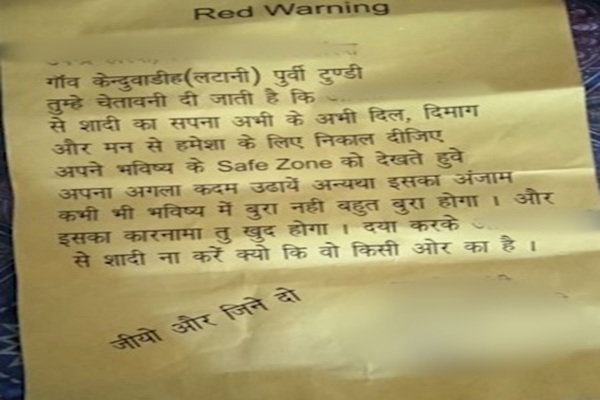 Red Warning
गाँव केन्दुवाडीह(लटानी) पुर्वी टुण्डी
तुम्हे चेतावनी दी जाती है कि
से शादी का सपना अभी के अभी दिल, दिमाग
और मन से हमेशा के लिए निकाल दीजिए
अपने भविष्य के Safe Zone को देखते हुवे
अपना अगला कदम उढायें अन्यथा इसका अंजाम
कभी भी भविष्य में बुरा नही बहुत बुरा होगा । और
इसका कारनामा तु खुद होगा । दया करके
से शादी ना करें क्यो कि वो किसी ओर का है ।
जीयो और जिने दो